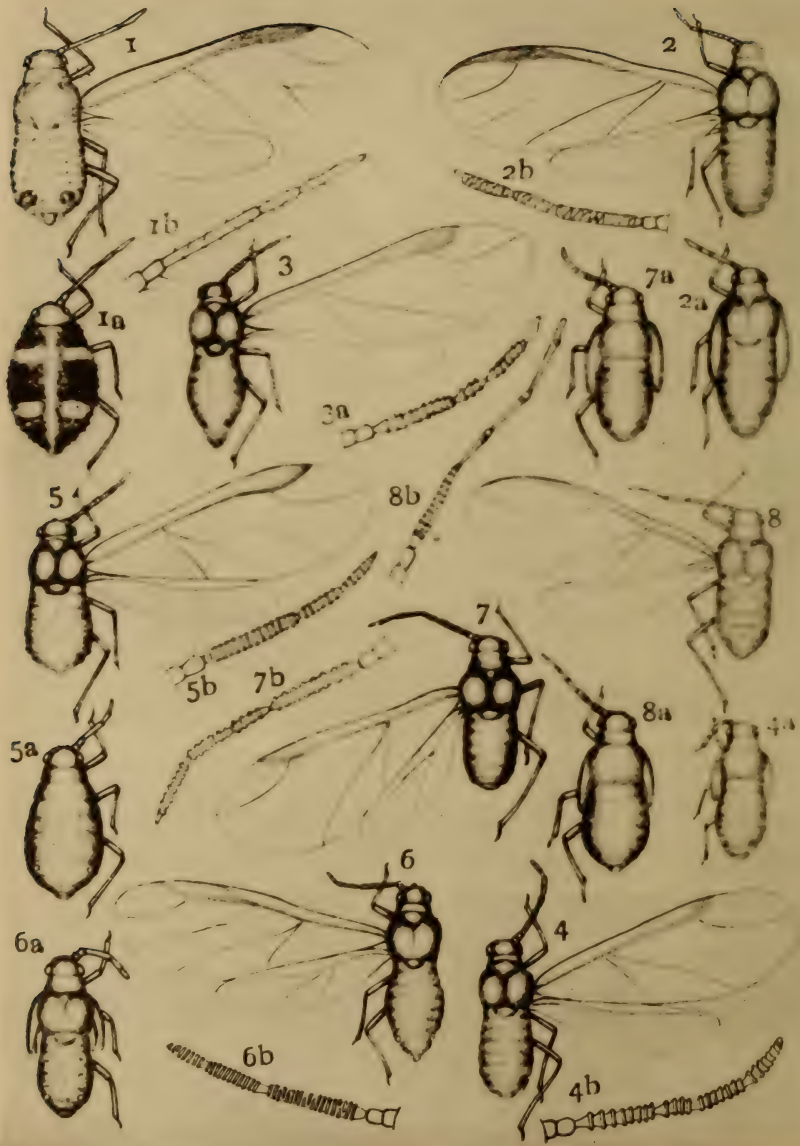 1
2
1b
2b
3
7a
2a
1a
3a
5
8b
8
5b
7b
7
8a
4a
5a
6
4
6a
6b
4b